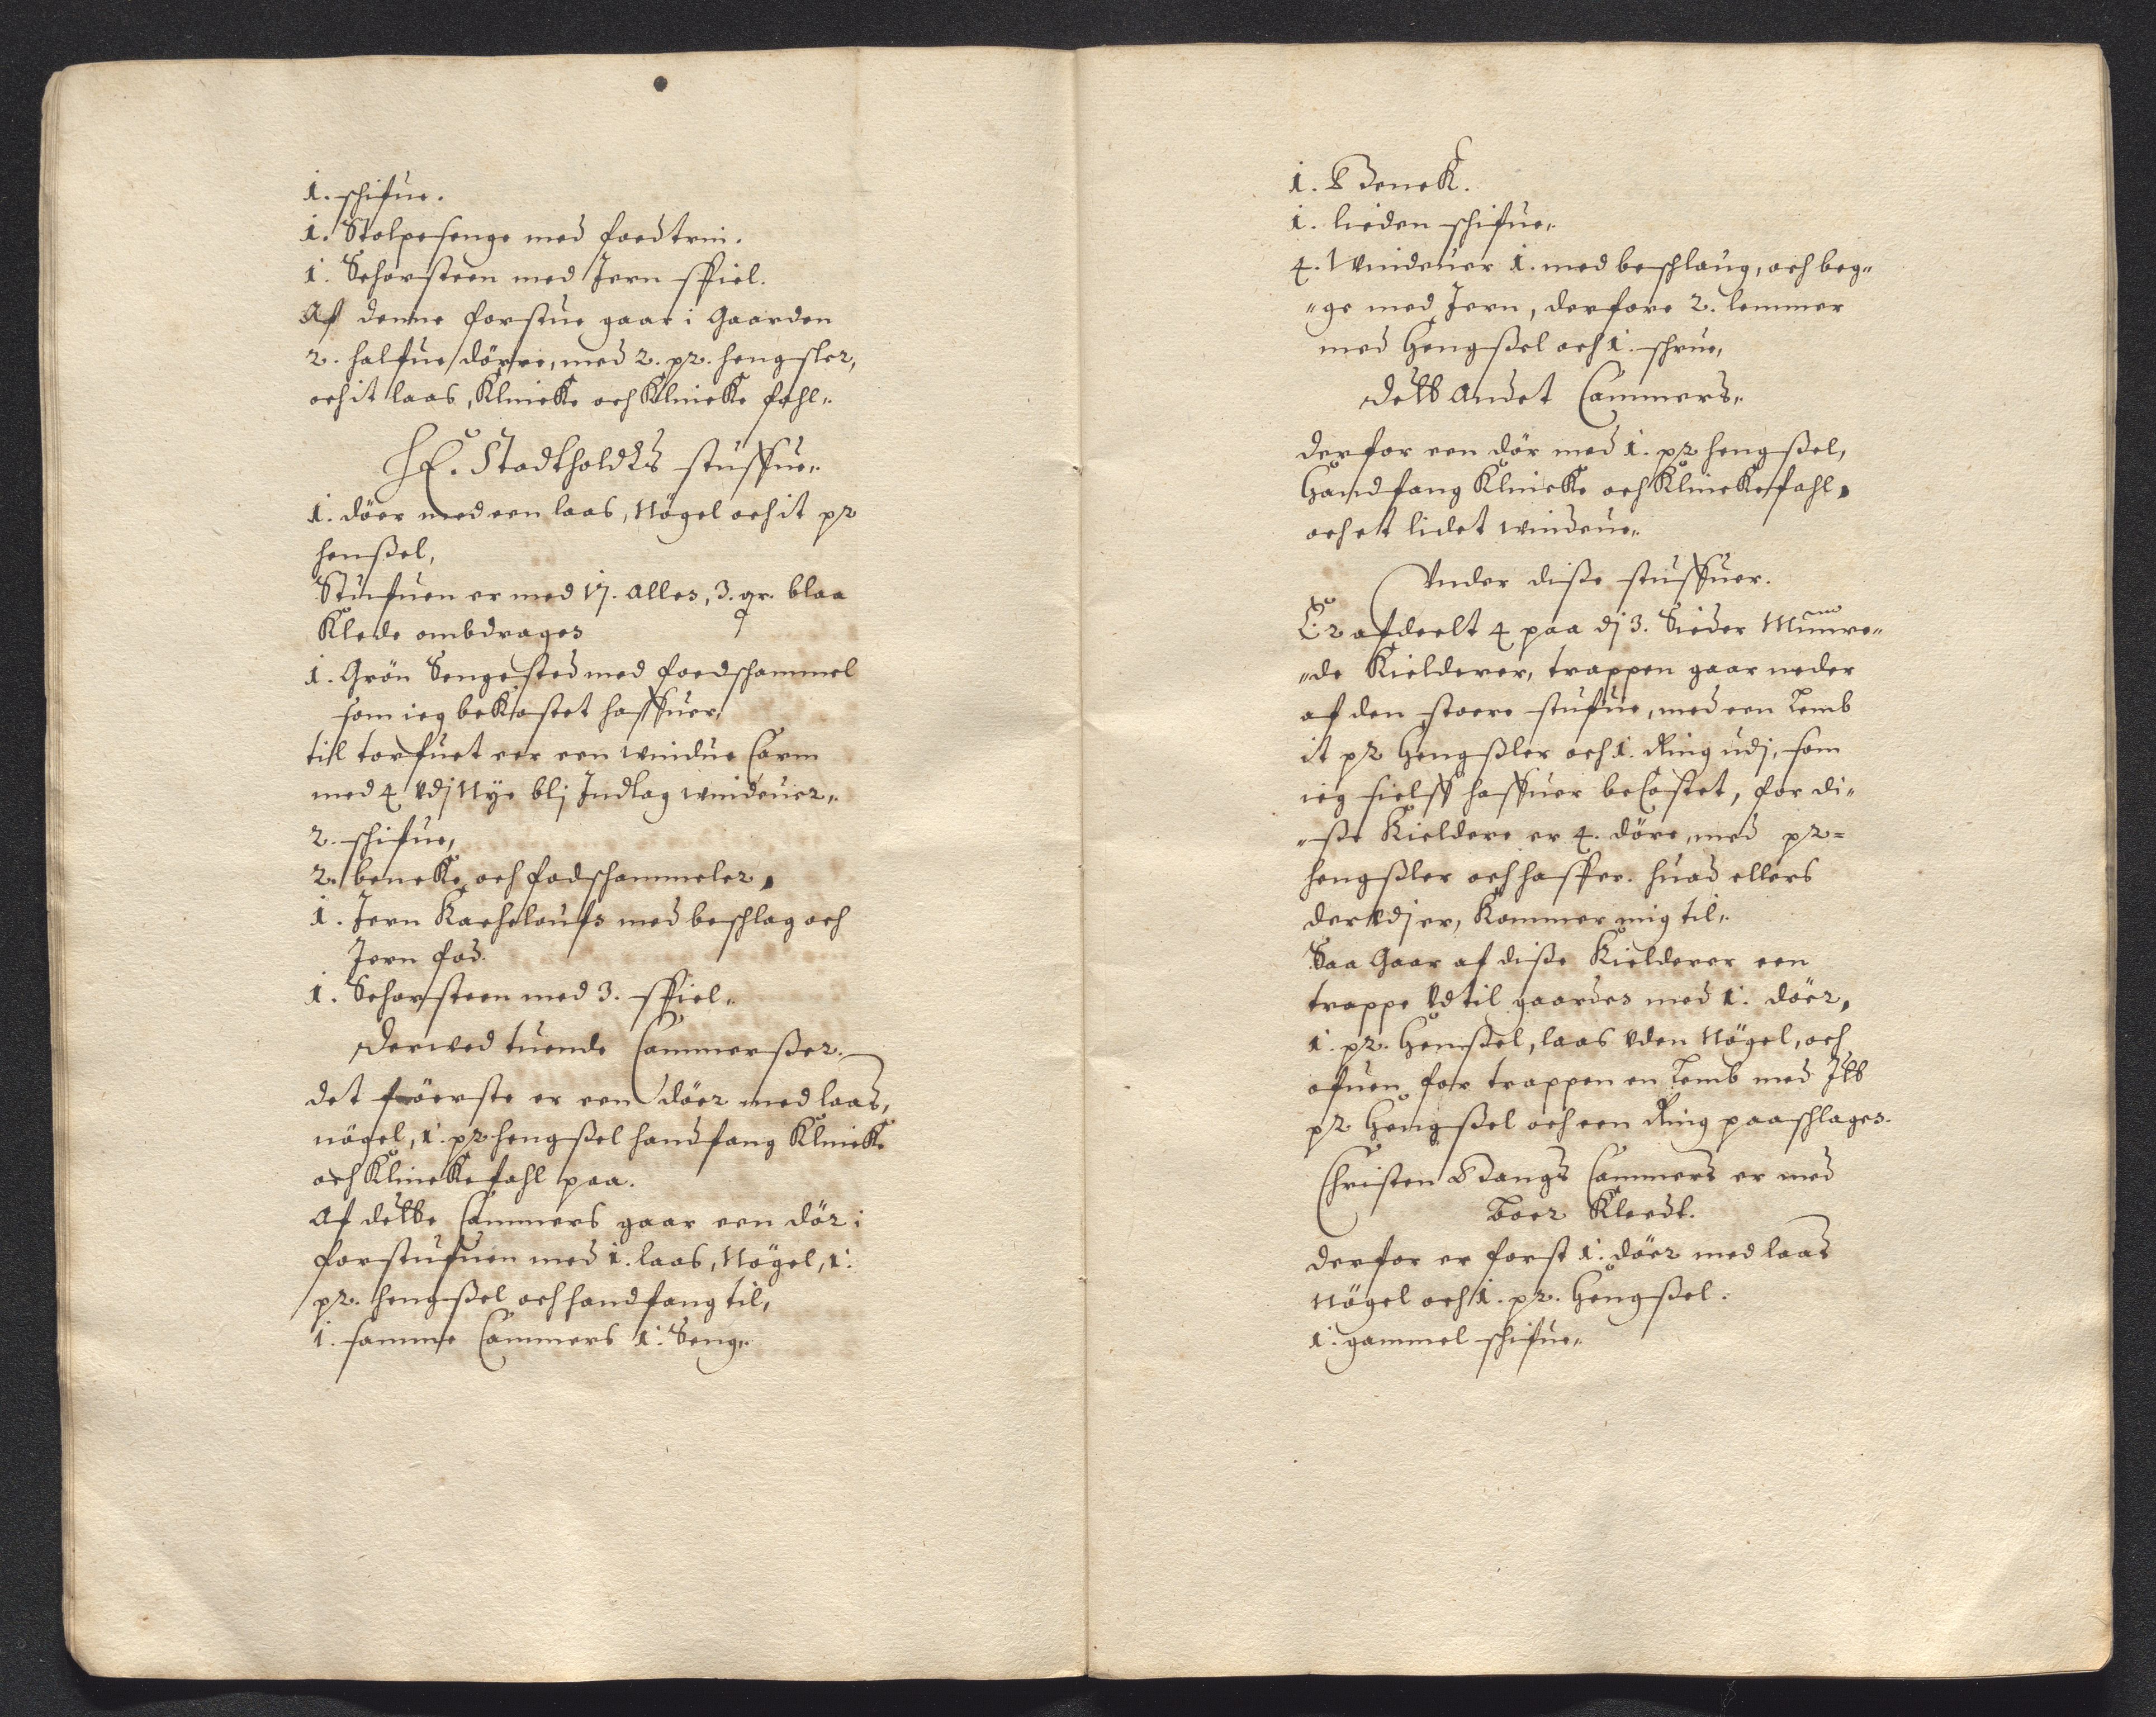 1. schifue.
1. Stolpesenge med foedtrin.
1. Schorsteen med Jern spiel.
Af denne forstue gaar i Gaarden
2. halfue dörre, med 2. pr. hengsler,
och it laas, Klincke och Klincke fahl„
HE. Stadtholdrs stuffue„
1. döer med een laas, Nögel och it pr
henßel,
Stufuen er med 17. alles, 3. qr. blaa
Klede ombdrages
1. Grön Sengested med foedschammel
som ieg bekostet haffuer,
till torfuet eer een windue Carm
med 4 Udj Nye blj Indlag windeuer„
2. schifue,
2. bencke och fodschammeler,
1. Jern Kacheloufs med beschlag och
Jern fod.
1. Schorsteen med 3. spiel„
Derwed tuende Cammerßer.
det föerste er een döer med laas,
nögel, 1. pr hengßel handfang Klincke
och Klinckefahl paa.
Af dette Cammers gaar een dör i
forstufuen med 1. laas, Nögel, 1.
pr. hengßel och handfang til,
i samme Cammers 1. Seng„
1. Benck.
1. lieden schifue„
4. Windeuer 1. med beschlaug, och beg„
„ge med Jern, derfore 2. lemmer
med Hengßel och 1. schrue,
Dett Andet Cammers„
derfor een dör med 1. pr hengßel,
Handfang Klincke och Klinckefahl,
och et lidet windeue„
Vnder diße stuffuer.
Er afdeelt 4 paa dj 3. Sieder Muure„
„de Kielderer, trappen gaar neder
af den stoere stufue, med een Lemb
it pr Hengßler och 1. Ring udj, som
ieg sielff haffuer becostet, for di„
„sse Kieldere er 4. döre, med pr=
hengßler och haffer. huad ellers
der Udj er, Kommer mig til„
Saa Gaar af diße Kielderer een
trappe Ud til gaardes med 1. döer,
1. pr. Henßel, laas Uden Nögel, och
ofuen for trappen en Lemb med Itt
pr Hengßel och een Ring paaschlages.
Christen Bangs Cammers er med
Boer Kleedt.
derfor er forst 1. döer med laas
Nögel och 1. pr. Hengßel.
1. gammel schifue„